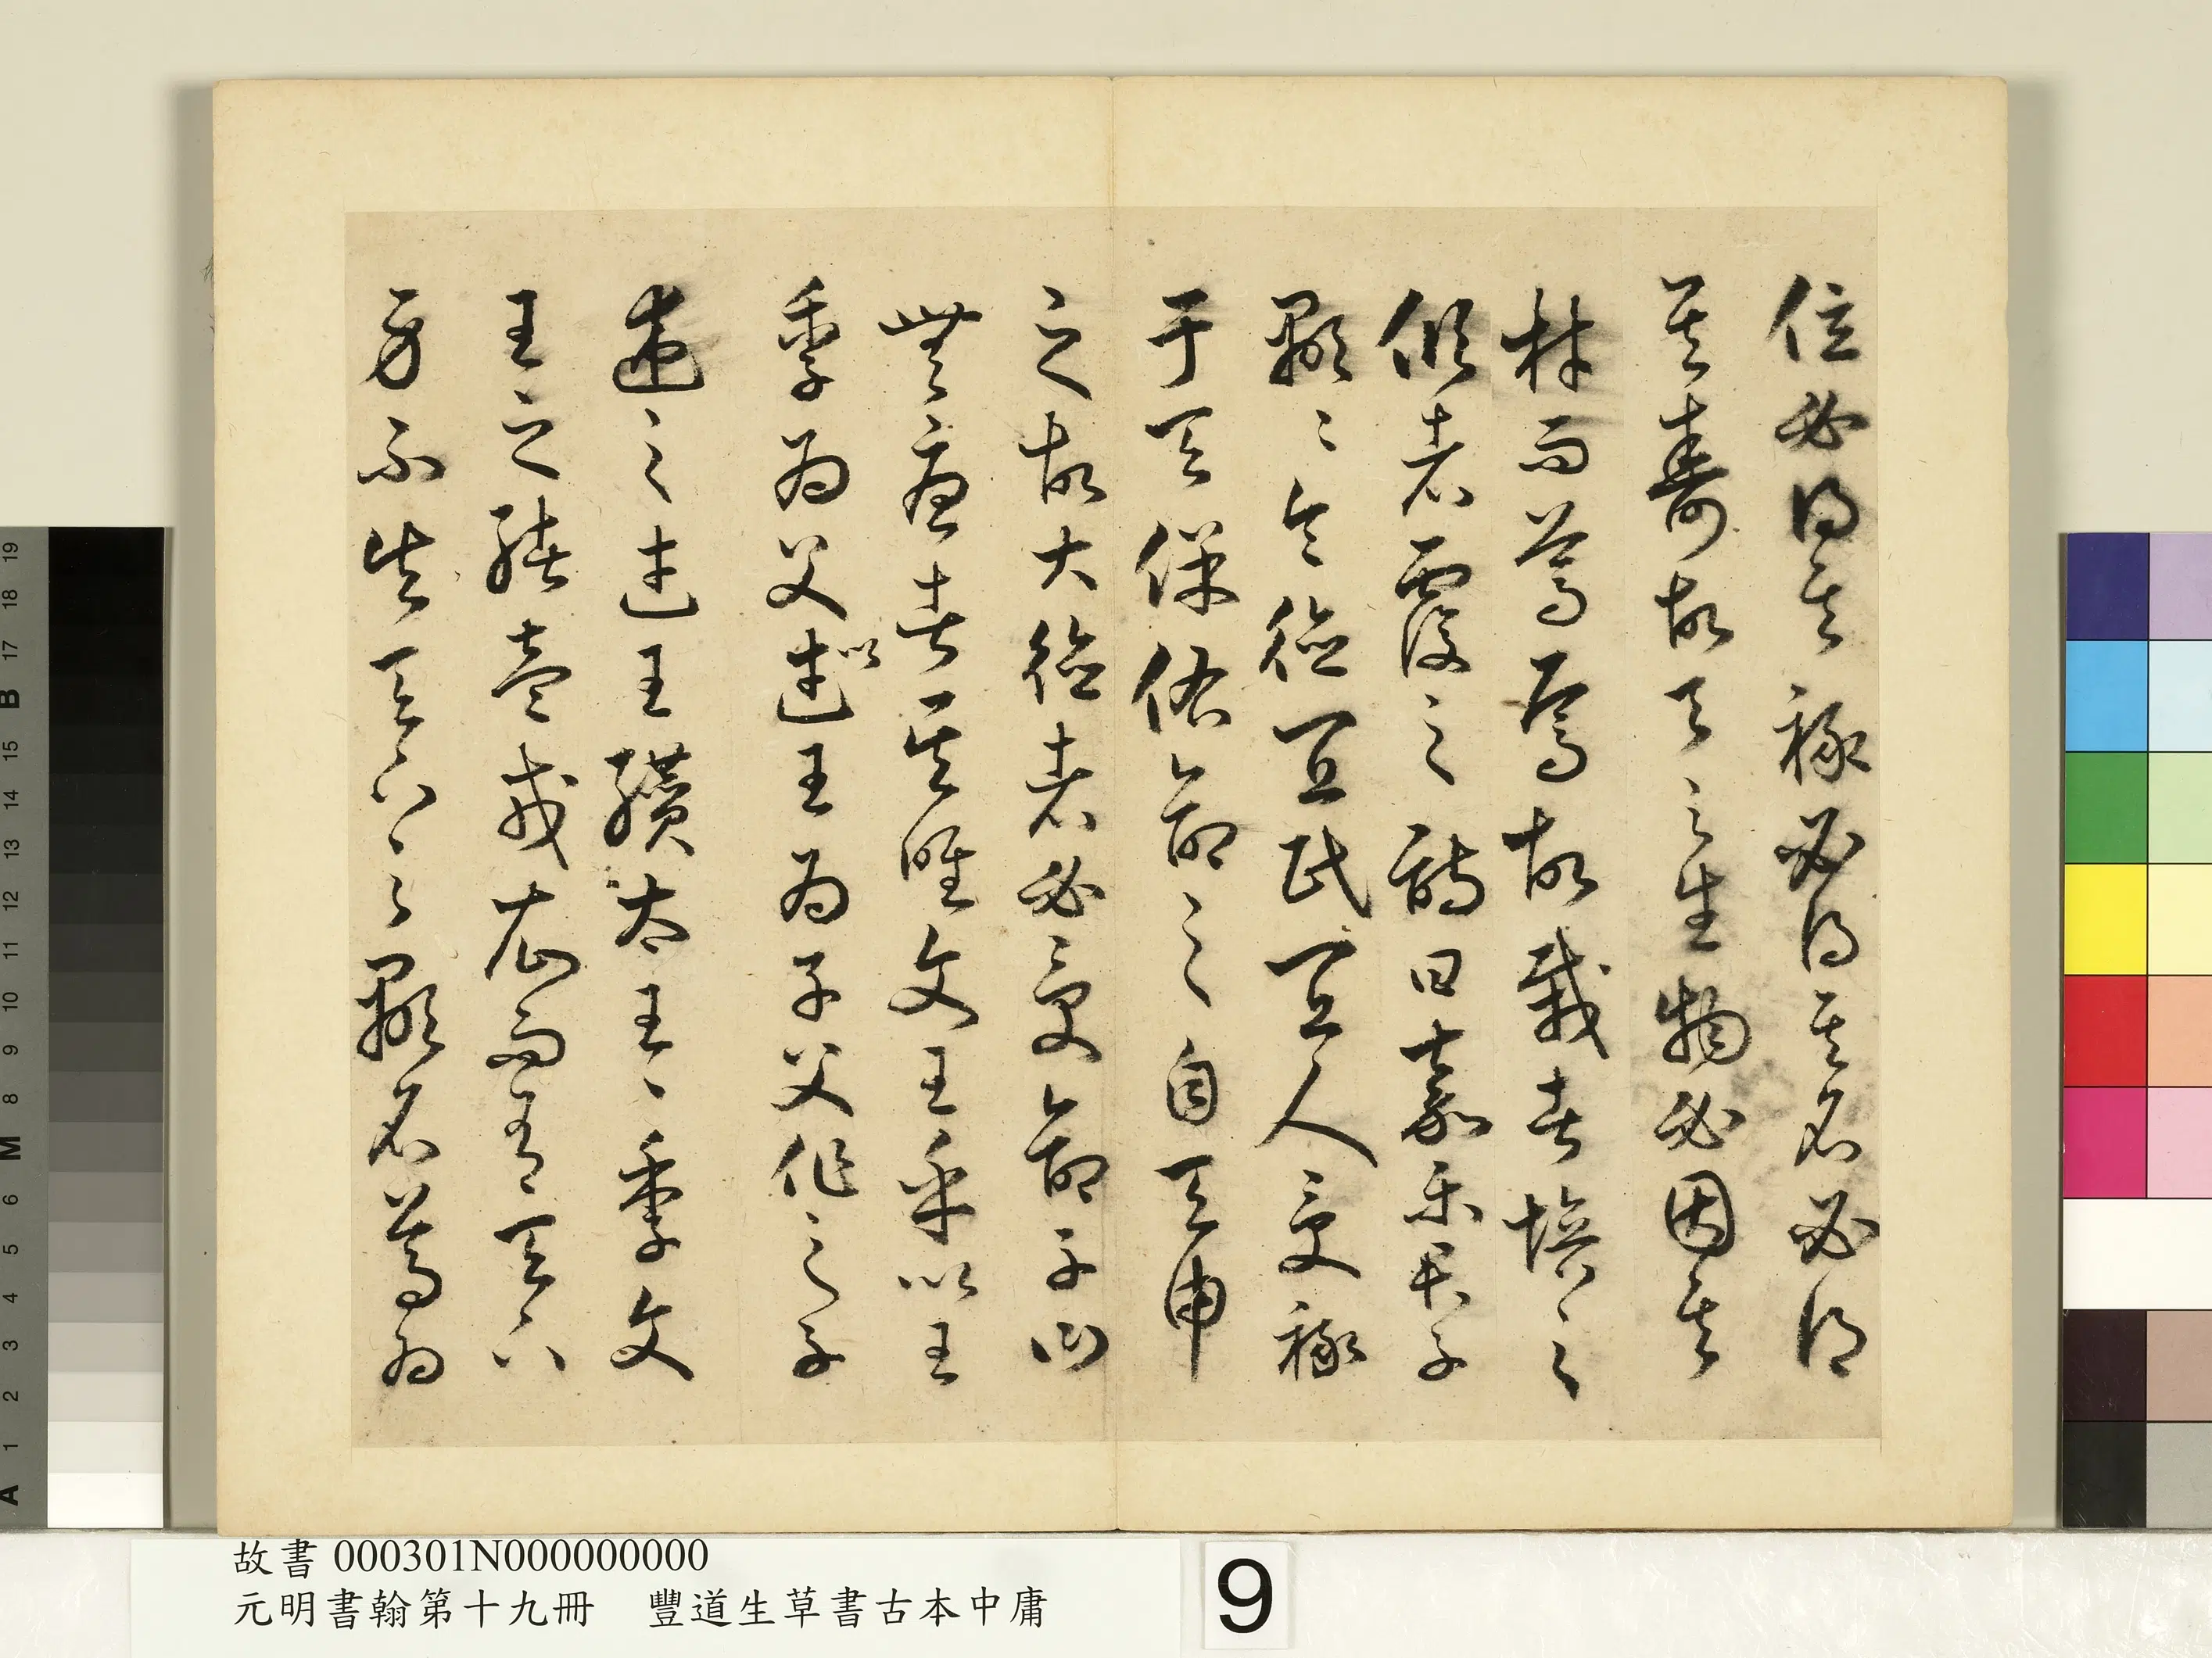 位必得其祿必得其名必得
其壽故天之生物必因其
材而篤焉故栽者培之
傾者覆之詩曰嘉樂君子
顯〻令德宜民宜人受祿
于天保佑命之自天申
之故大德者必受命子曰
無憂者其唯文王乎以王
季為父以武王為子父作之子
述之武王纘太王〻季文
王之緒壹戎衣而有天下
身不失天下之顯名尊為
故書 000301N000000000
元明書翰第十九冊 豐道生草書古本中庸
9
A 1 2 3 4 5 6 M 8 9 10 11 12 13 14 15 B 17 18 19